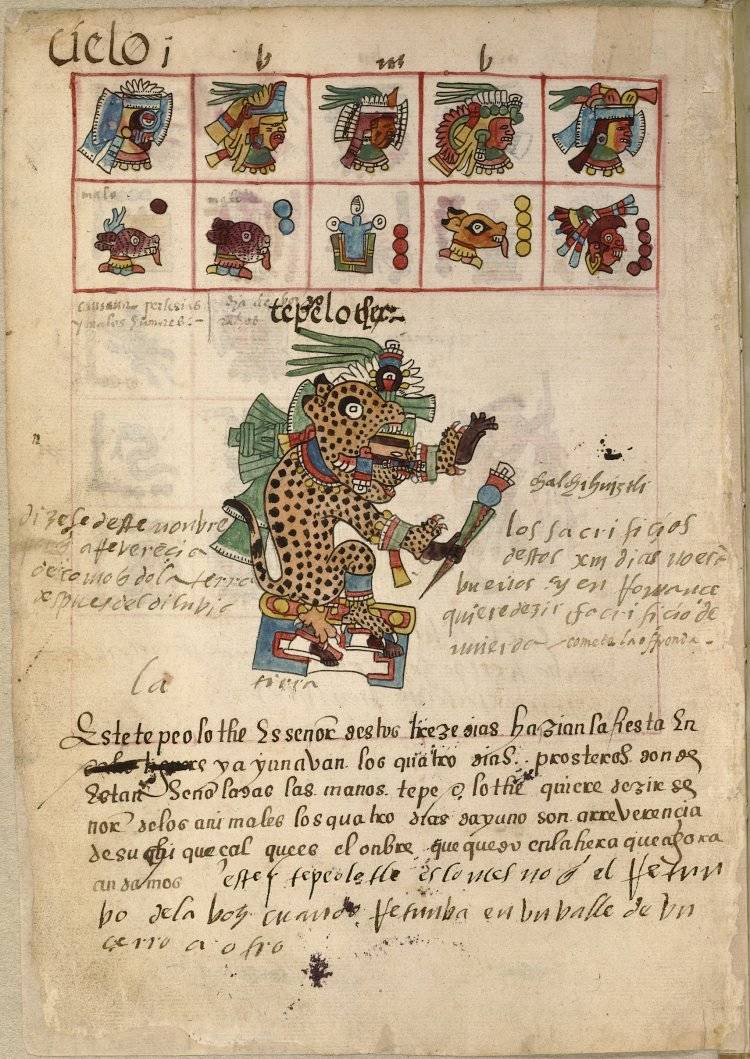 cielo j
b
m
b
malo
malo
causan perlesias
y malos humores
dia de
tepelotle
chalchihuiztli
dizese deste nombre
a reverēcia
de como q do la tierra
despues del dilubio
los sacrificios
destos xiii dias no erā
buenos y en romance
quiere dezir sacrificio de
mierda
la
tierra
Este tepeolotle Es señor destos treze dias hazian la fiesta En
y ayunavan los quatro dias prosteros donde
Estan Señaladas las manos tepeolotle quiere dezir se
ñor delos animales los quatro dias de ayuno son a rreverencia
de suchiqueçal ques el onbre que quedo en la tierra que agora
andamos este tepeolotle es lo mesmo q el Retun
bo de la boz cuando Retumba en un valle de un
cerro a otro